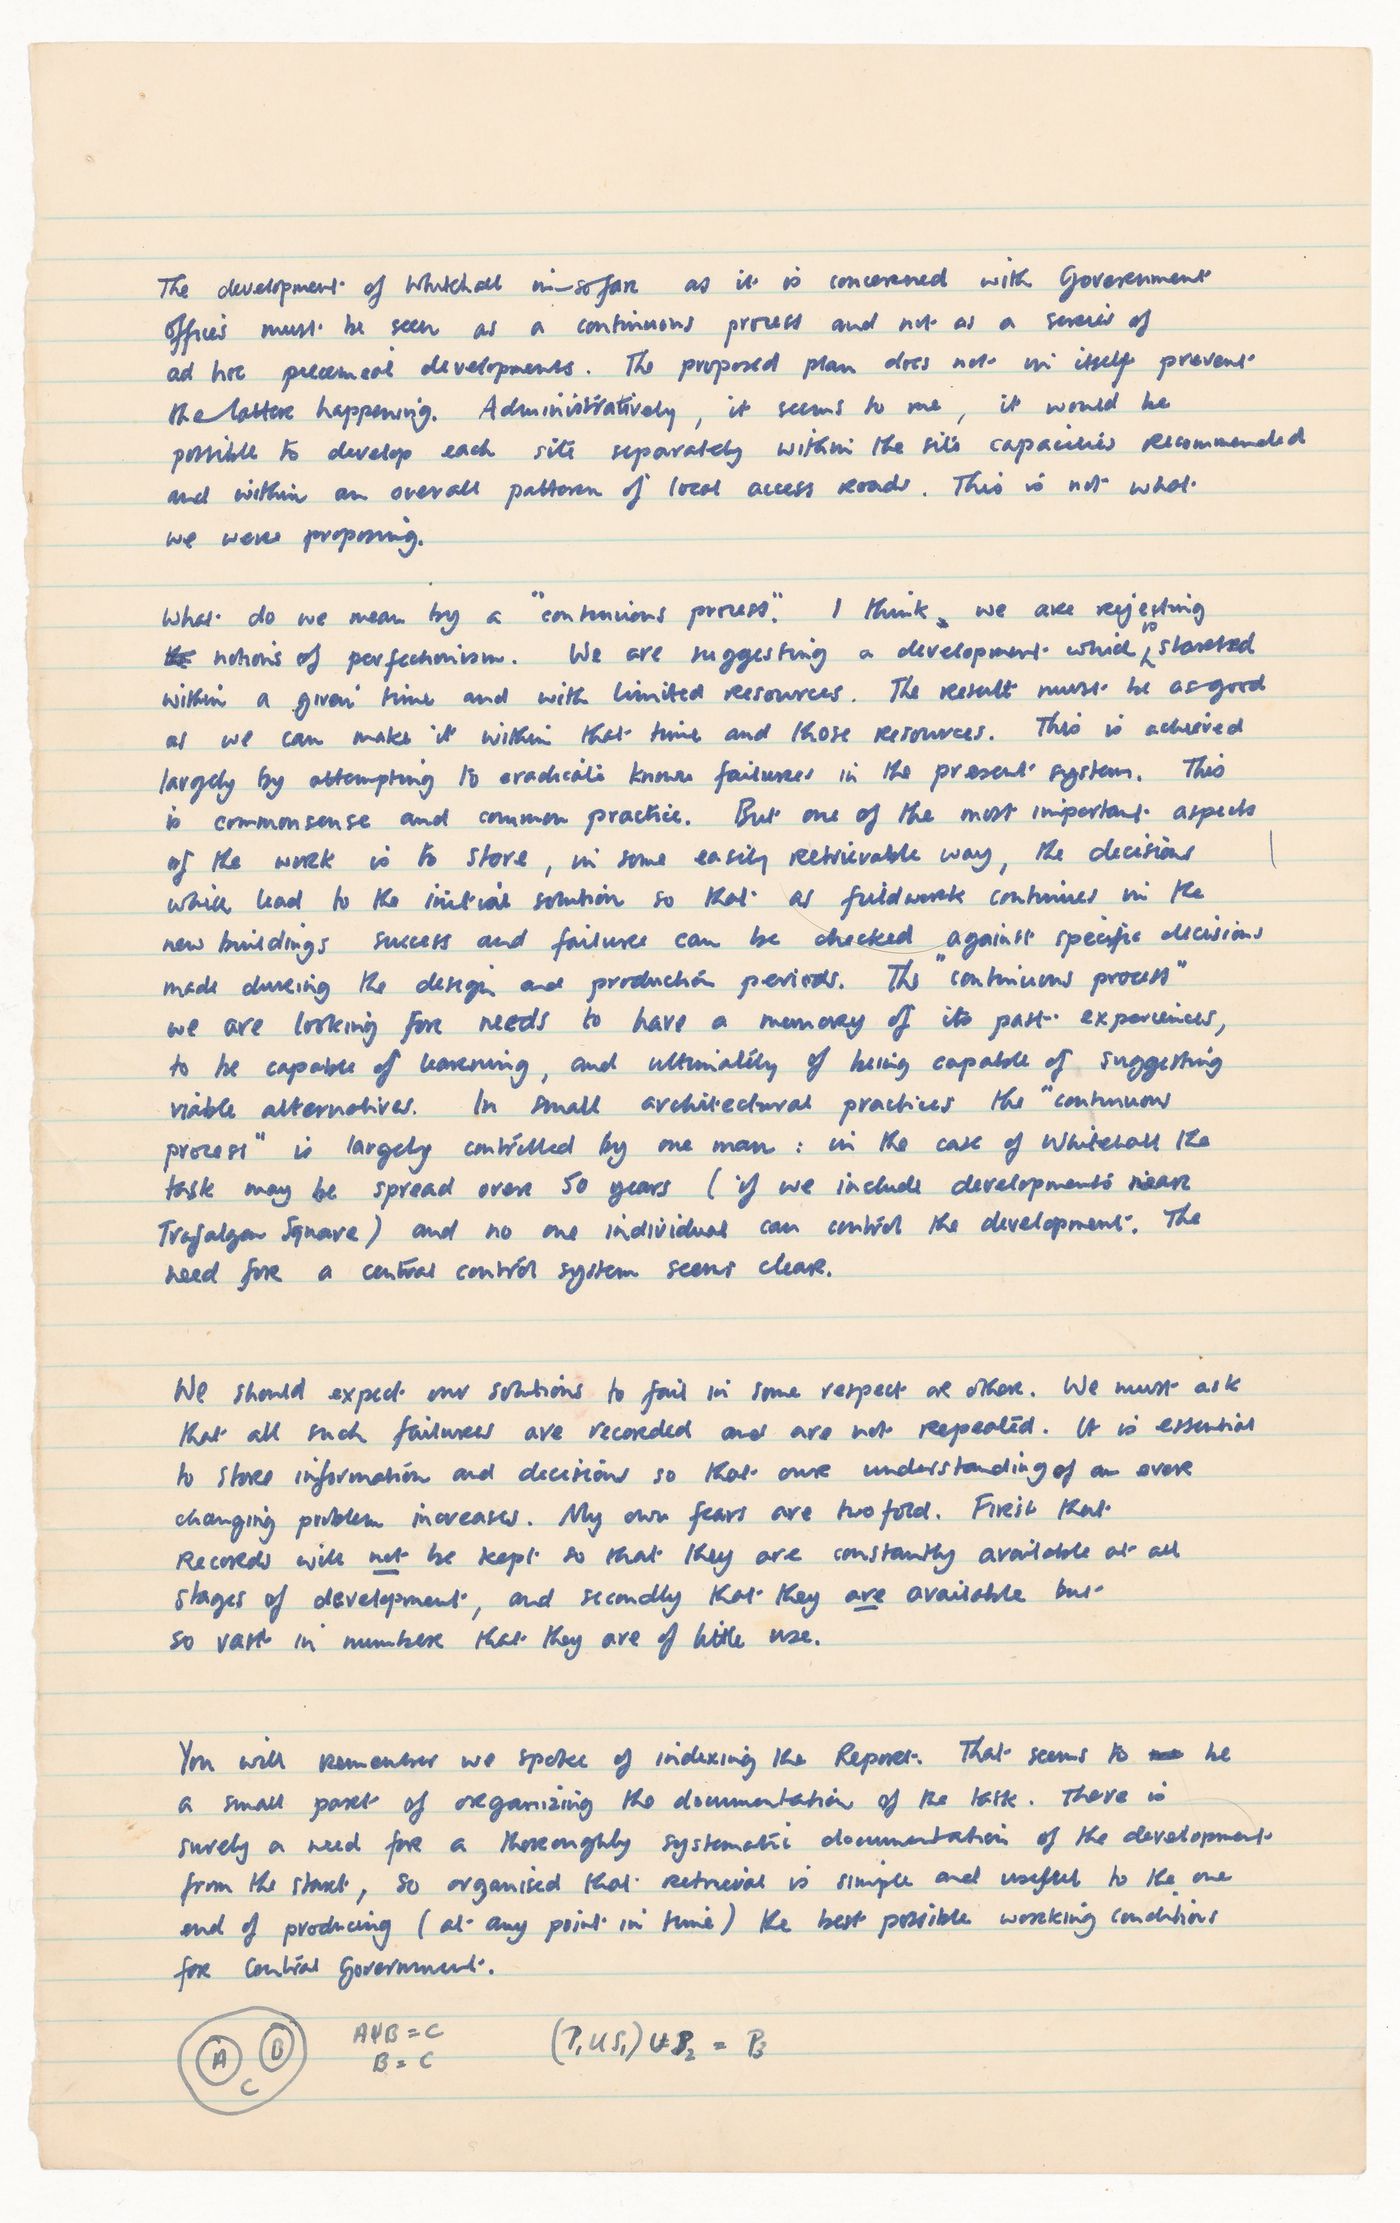 The development of Whitehall in-so far as it is concerned with Government
Offices must be seen as a continuous process and not as a series of
ad hoc piecemeal developments. The proposed plan does not in itself prevent
the latter happening. Administratively, it seems to me, it would be
possible to develop each site separately within the site capacities recommended
and within an overall pattern of local access roads. This is not what
we were proposing.
What do we mean by a "continuous process". I think we are rejecting
the notions of perfectionism. We are suggesting a development which is started
within a given time and with limited resources. The result must be as good
as we can make it within that time and those resources. This is achieved
largely by attempting to eradicate known failures in the present system. This
is commonsense and common practice. But one of the most important aspects
of the work is to store, in some easily retrievable way, the decisions
which lead to the initial solution so that as fieldwork continues in the
new buildings success and failure can be checked against specific decisions
made during the design and production periods. The "continuous process"
we are looking for needs to have a memory of its past experiences,
to be capable of learning, and ultimately of being capable of suggesting
viable alternatives. In small architectural practices the "continuous
process" is largely controlled by one man : in the case of Whitehall the
task may be spread over 50 years (if we include developments near
Trafalgar Square) and no one individual can control the development. The
need for a central control system seems clear.
We should expect our solutions to fail in some respect or other. We must ask
that all such failures are recorded and are not repeated. It is essential
to store information and decisions so that our understanding of an ever
changing problem increases. My own fears are twofold. First that
records will not be kept so that they are constantly available at all
stages of development, and secondly that they are available but
so vast in number that they are of little use.
You will remember we spoke of indexing the Report. That seems to be
a small part of organizing the documentation of the task. There is
surely a need for a thoroughly systematic documentation of the development
from the start, so organised that retrieval is simple and useful to the one
end of producing (at any point in time) the best possible working conditions
for Central Government.
A B C
A ∪ B = C
B = C
(P₁ ∪ S₁) ∪ P₂ = P₃